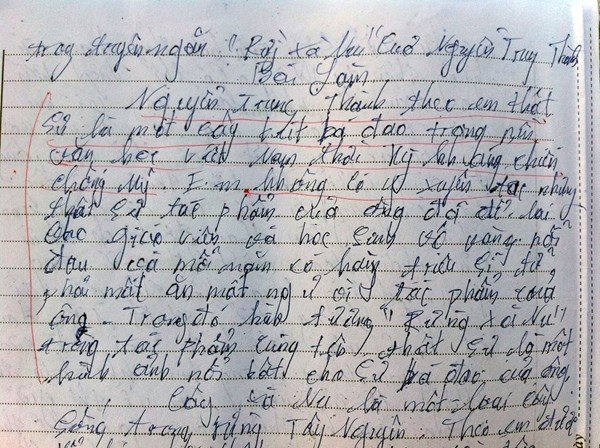 trong truyện ngắn "Rừng xà Nu" Của Nguyễn Trung Thành
Bài Làm
Nguyễn Trung Thành theo em thật
sự là một cây bút bá đạo trong nền
văn học việt Nam thời kỳ kháng chiến
chống Mỹ. Em không có ý xuyên tạc nhưng
thật sự tác phẩm của ông đã để lại
các giáo viên và học sinh vô vàng nỗi
đau cứ mỗi năm có hàng triệu sĩ tử
phải mất ăn mất ngủ vì tác phẩm của
ông. Trong đó hình tượng "Rừng Xà Nu"
trong tác phẩm cùng tên thật sự là một
hình ảnh nổi bật cho sự bá đạo của ông.
Cây xà Nu là một loại cây
sống trong rừng Tây Nguyên Theo em được